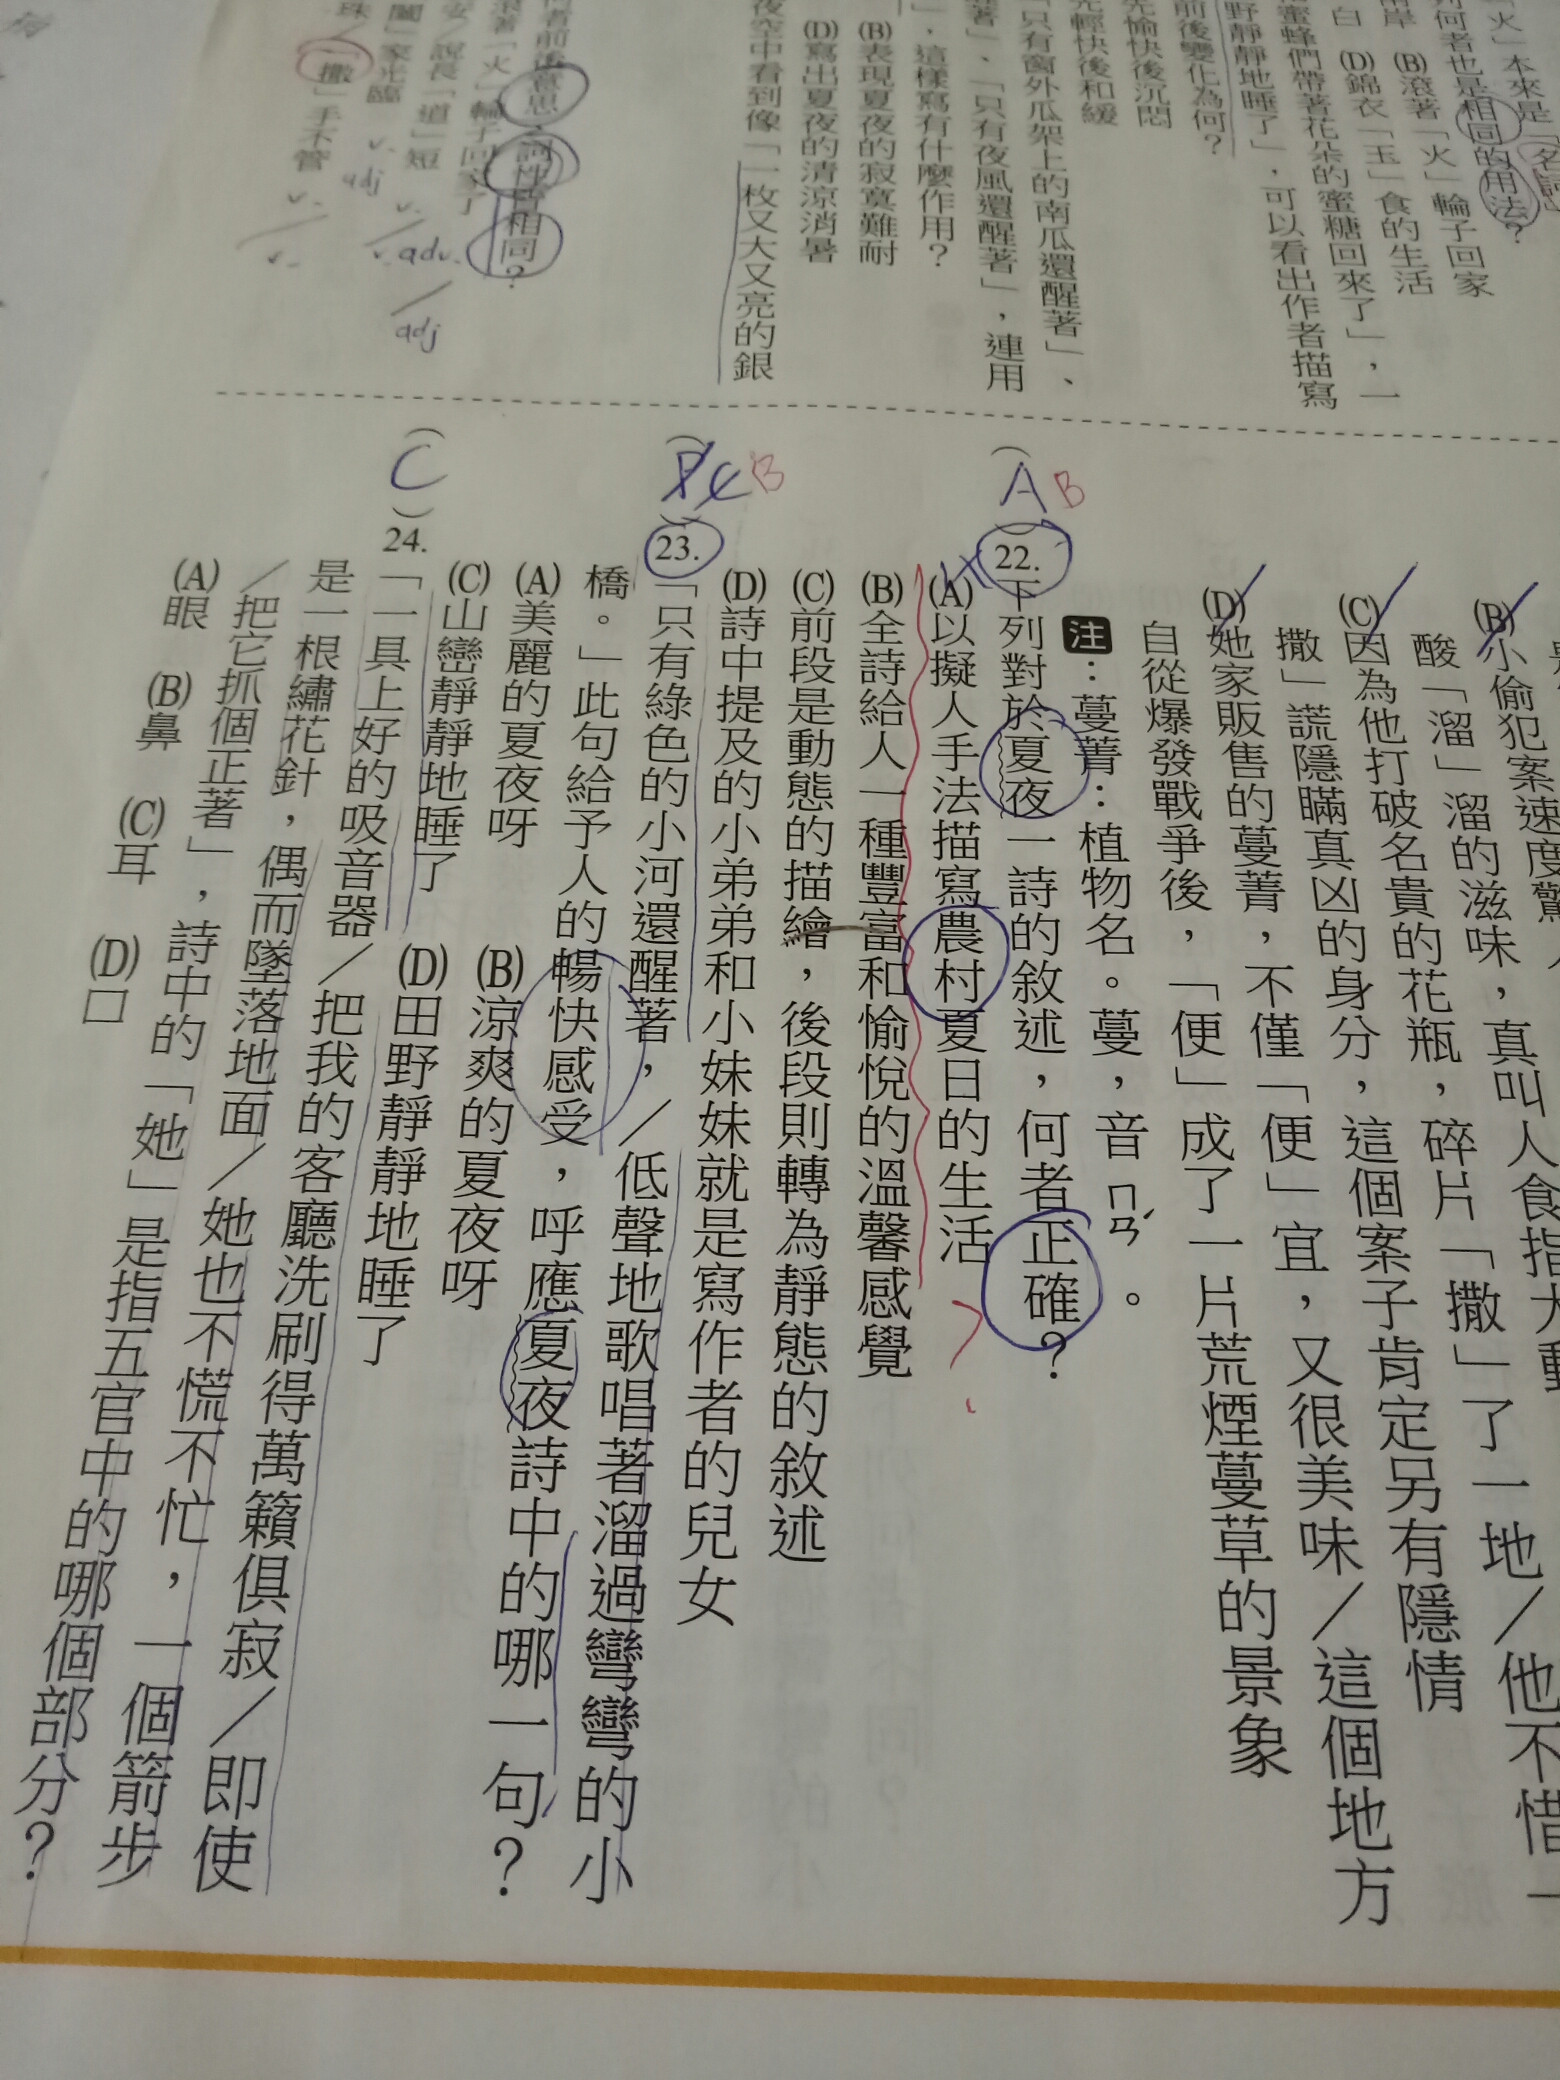 「火」本來是「名詞」
何者也是相同的用法？
(B)滾著「火」輪子回家
(D)錦衣「玉」食的生活
蜜蜂們帶著花朵的蜜糖回來了」，一
野靜靜地睡了」，可以看出作者描寫
前後變化為何？
先愉快後沉悶
先輕快後和緩
「只有窗外瓜架上的南瓜還醒著」、
「只有夜風還醒著」，連用
」，這樣寫有什麼作用？
(B)表現夏夜的寂寞難耐
(D)寫出夏夜的清涼消暑
夜空中看到像「一枚又大又亮的銀
何者前後意思、詞性皆相同？
滾著「火」輪子回家了
說長「道」短
闔」家光臨
珠／「撒」手不管
v.
adj
v.
v.
v.
adv.
adj
(B)小偷犯案速度驚人
酸「溜」溜的滋味，真叫人食指大動
(C)因為他打破名貴的花瓶，碎片「撒」了一地／他不惜
撒」謊隱瞞真凶的身分，這個案子肯定另有隱情
(D)她家販售的蔓菁，不僅「便」宜，又很美味／這個地方
自從爆發戰爭後，「便」成了一片荒煙蔓草的景象
注：蔓菁：植物名。蔓，音ㄇㄢˊ。
(A)B
22.下列對於夏夜一詩的敘述，何者正確？
(A)以擬人手法描寫農村夏日的生活
(B)全詩給人一種豐富和愉悅的溫馨感覺
(C)前段是動態的描繪，後段則轉為靜態的敘述
(D)詩中提及的小弟弟和小妹妹就是寫作者的兒女
?
B
23.「只有綠色的小河還醒著，／低聲地歌唱著溜過彎彎的小
橋。」此句給予人的暢快感受，呼應夏夜詩中的哪一句？
(A)美麗的夏夜呀 (B)涼爽的夏夜呀
(C)山巒靜靜地睡了 (D)田野靜靜地睡了
(C)
24.「一具上好的吸音器／把我的客廳洗刷得萬籟俱寂／即使
是一根繡花針，偶而墜落地面／她也不慌不忙，一個箭步
／把它抓個正著」，詩中的「她」是指五官中的哪個部分？
(A)眼 (B)鼻 (C)耳 (D)口